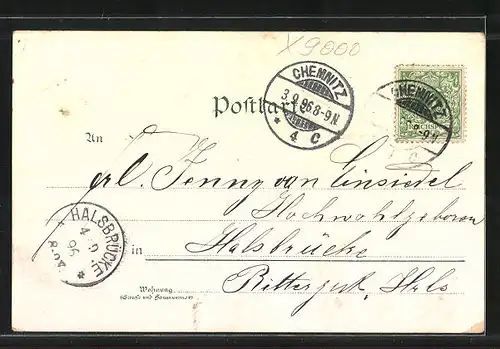 X9000
CHEMNITZ
3.9.96 8-9N
* 4 C
Postkarte
CHEMNITZ
An
Frl. Jenny von Einsiedel
Hochwohlgeboren
HALSBRÜCKE
4 9
96
*
in Halsbrücke
Wohnung
(Straße und Hausnummer)
Rittergut, Hals